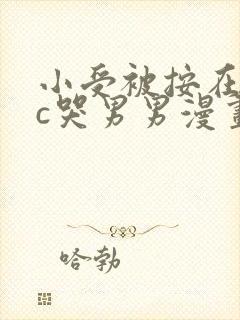 小受被按在
c哭男男漫畫
哈勃